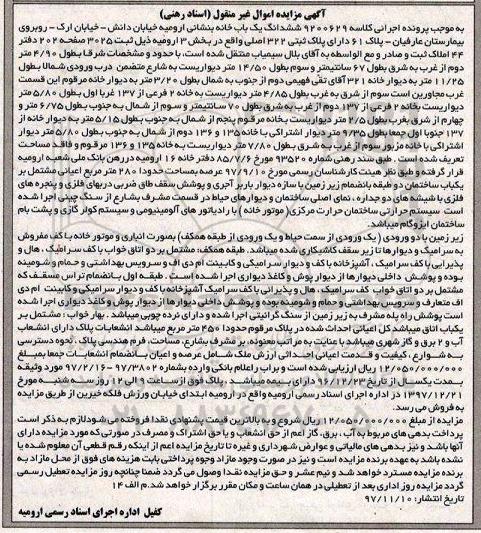 آگهی مزایده اموال غیر منقول (اسناد رهنی)
به موجب پرونده اجرائی کلاسه ۹۲۰۰۶۲۹ ششدانگ یک باب خانه بنشانی ارومیه خیابان دانش - خیابان ارک - روبروی
بیمارستان عارفیان - پلاک ۶۱ دارای پلاک ثبتی ۳۲۲ اصلی واقع در بخش ۳ ارومیه ذیل ثبت ۳۰۲۵ صفحه ۲۰۲ دفتر
۴۴ املاک ثبت و صادر و مع الواسطه به آقای بلال سیمیاب منتقل شده است، با حدود و مشخصات شرقا بطول ۴/۹۰ متر
دوم از غرب به شرق بطول ۶۲ سانتیمتر و سوم بطول ۱۴/۵۰ متر دیواریست به شارع متضمن درب ورودی شمالا بطول
۱۱/۲۵ متر به دیوار خانه ۳۲۱ آقای تقی فهیمی دوم از جنوب به شمال بطول ۳/۲۰ متر به دیوار خانه مرقوم این قسمت
غرب مجاورین است سوم از شرق به غرب بطول ۴/۸۵ متر دیواریست به خانه ۲ فرعی از ۱۳۷ غربا اول بطول ۵/۸۰ متر
دیواریست بخانه ۲ فرعی از ۱۳۷ دوم از غرب به شرق بطول ۷۰ سانتیمتر و سوم از شمال به جنوب بطول ۶/۷۵ متر و
چهارم از شرق بغرب بطول ۲/۵ متر دیواریست بخانه مرقوم پنجم از شمال به جنوب بطول ۵/۱۵ متر به دیوار خانه از
۱۳۷ جنوبا اول جمعا بطول ۹/۳۵ متر دیوار اشتراکی با خانه ۱۳۵ و ۱۳۶ دوم از شمال به جنوب بطول ۵/۸۰ متر دیوار
اشتراکی با خانه مزبور سوم از غرب به شرق بطول ۷/۸۰ متر دیواریست به خانه ۱۳۵ و ۱۳۶ مرقوم و فاقد مساحت
تعریف شده است. طبق سند رهنی شماره ۹۳۵۲۰ مورخ ۸۵/۷/۶ دفتر خانه ۱۶ ارومیه در رهن بانک ملی شعبه ارومیه
قرار گرفته و طبق نظر هیئت کارشناسان رسمی مورخ ۹۷/۹/۱۰ عرصه بمساحت حدودا ۲۸۰ متر مربع اعیانی مشتمل بر
یکباب ساختمان دو طبقه بانضمام زیر زمین با سازه دیوار باربر آجری و پوشش سقف طاق ضربی دربهای فلزی و پنجره های
فلزی با شیشه های دو جداره، نمای اصلی ساختمان و دیوارهای حیاط در قسمت مشرف بشارع از سنگ چینی اجرا شده
است. سیستم حرارتی ساختمان حرارت مرکزی (موتور خانه) با رادیاتور های آلومینیومی و سیستم کولر گازی و پشت بام
ساختمان ایزوگام میباشد.
زیر زمین با دو ورودی (یک ورودی از سمت حیاط و یک ورودی از طبقه همکف) بصورت انباری و موتور خانه با کف مفروش
به سرامیک و دیوار ها تا زیر سقف کاشیکاری شده میباشد. طبقه همکف: مشتمل بر دو اتاق خواب با کف سرامیک، هال و
پذیرایی با کف سرامیک، آشپزخانه با کف و دیوار سرامیکی و کابینت ام دی اف و سرویس بهداشتی و حمام و شومینه
بوده و پوشش داخلی دیوارها از دیوار پوش و کاغذ دیواری اجرا شده است. طبقه اول بانضمام تراس مسقف که
مشتمل بر دو اتاق خواب کف سرامیک، هال و پذیرائی با کف سرامیک آشپزخانه با کف و دیوار سرامیکی و کابینت ام دی
اف متعارف و سرویس بهداشتی و حمام و شومینه بوده و پوشش داخلی دیوارها از دیوار پوش و کاغذ دیواری اجرا شده
است پوشش راه پله مشرف به زیر زمین از سنگ گرانیتی اجرا شده و دارای نرده چوبی میباشد. بهار خواب: مشتمل بر
یکباب اتاق میباشد کل اعیانی احداث شده در پلاک مرقوم حدودا ۴۵۰ متر مربع میباشد انشعابات پلاک دارای انشعاب
آب و ۲ برق و گاز شهری میباشد با عنایت به مراتب معنونه، بر مشرف بشارع، مساحت، فرم هندسی پلاک، نحوه دسترسی
به شوارع، کیفیت و قدمت اعیانی احداثی ارزش ملک شامل عرصه و اعیان بانضمام انشعابات جمعا بمبلغ
۱۲/۰۵۰/۰۰۰/۰۰۰ ریال ارزیابی شده است و برابر اعلام بانکی وارده بشماره ۹۷/۳۸۰۲ - ۹۷/۲/۱۶ مورد وثیقه
بمدت یکسال از تاریخ ۹۶/۱۲/۲۳ دارای بیمه میباشد. پلاک فوق از ساعت ۹ الی ۱۲ روز سه شنبه مورخ
۱۳۹۷/۱۲/۲۱ در اداره اجرای اسناد رسمی ارومیه واقع در ارومیه ابتدای خیابان ورزش فلکه خیرین از طریق مزایده
به فروش می رسد.
مزایده از مبلغ ۱۲/۰۵۰/۰۰۰/۰۰۰ ریال شروع و به بالاترین قیمت پیشنهادی نقدا فروخته می شود لازم به ذکر است
پرداخت بدهی های مربوط به آب، برق، گاز اعم از حق انشعاب و یا حق اشتراک و مصرف در صورتی که مورد مزایده دارای
آنها باشد و نیز بدهی های مالیاتی و عوارض شهرداری و غیره تا تاریخ مزایده اعم از اینکه رقم قطعی آن معلوم شده یا
نشده باشد به عهده برنده مزایده است و نیز در صورت وجود مازاد وجوه پرداختی بابت هزینه های فوق از محل مازاد به
برنده مزایده مسترد خواهد شد و نیم عشر و حق مزایده نقدا وصول می گردد ضمنا چنانچه روز مزایده تعطیل رسمی
گردد مزایده روز اداری بعد از تعطیلی در همان ساعت و مکان مقرر برگزار خواهد شد. م الف ۱۴
تاریخ انتشار: ۹۷/۱۱/۱۰
کفیل اداره اجرای اسناد رسمی ارومیه